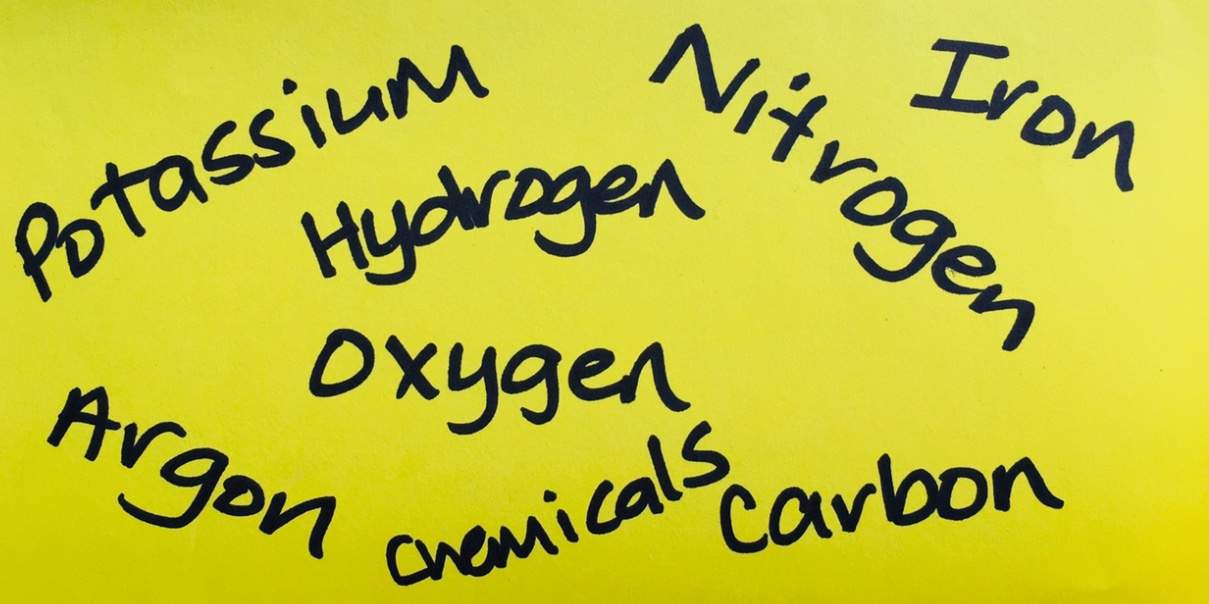 Potassium
Nitrogen
Iron
Hydrogen
Oxygen
Argon
chemicals
carbon